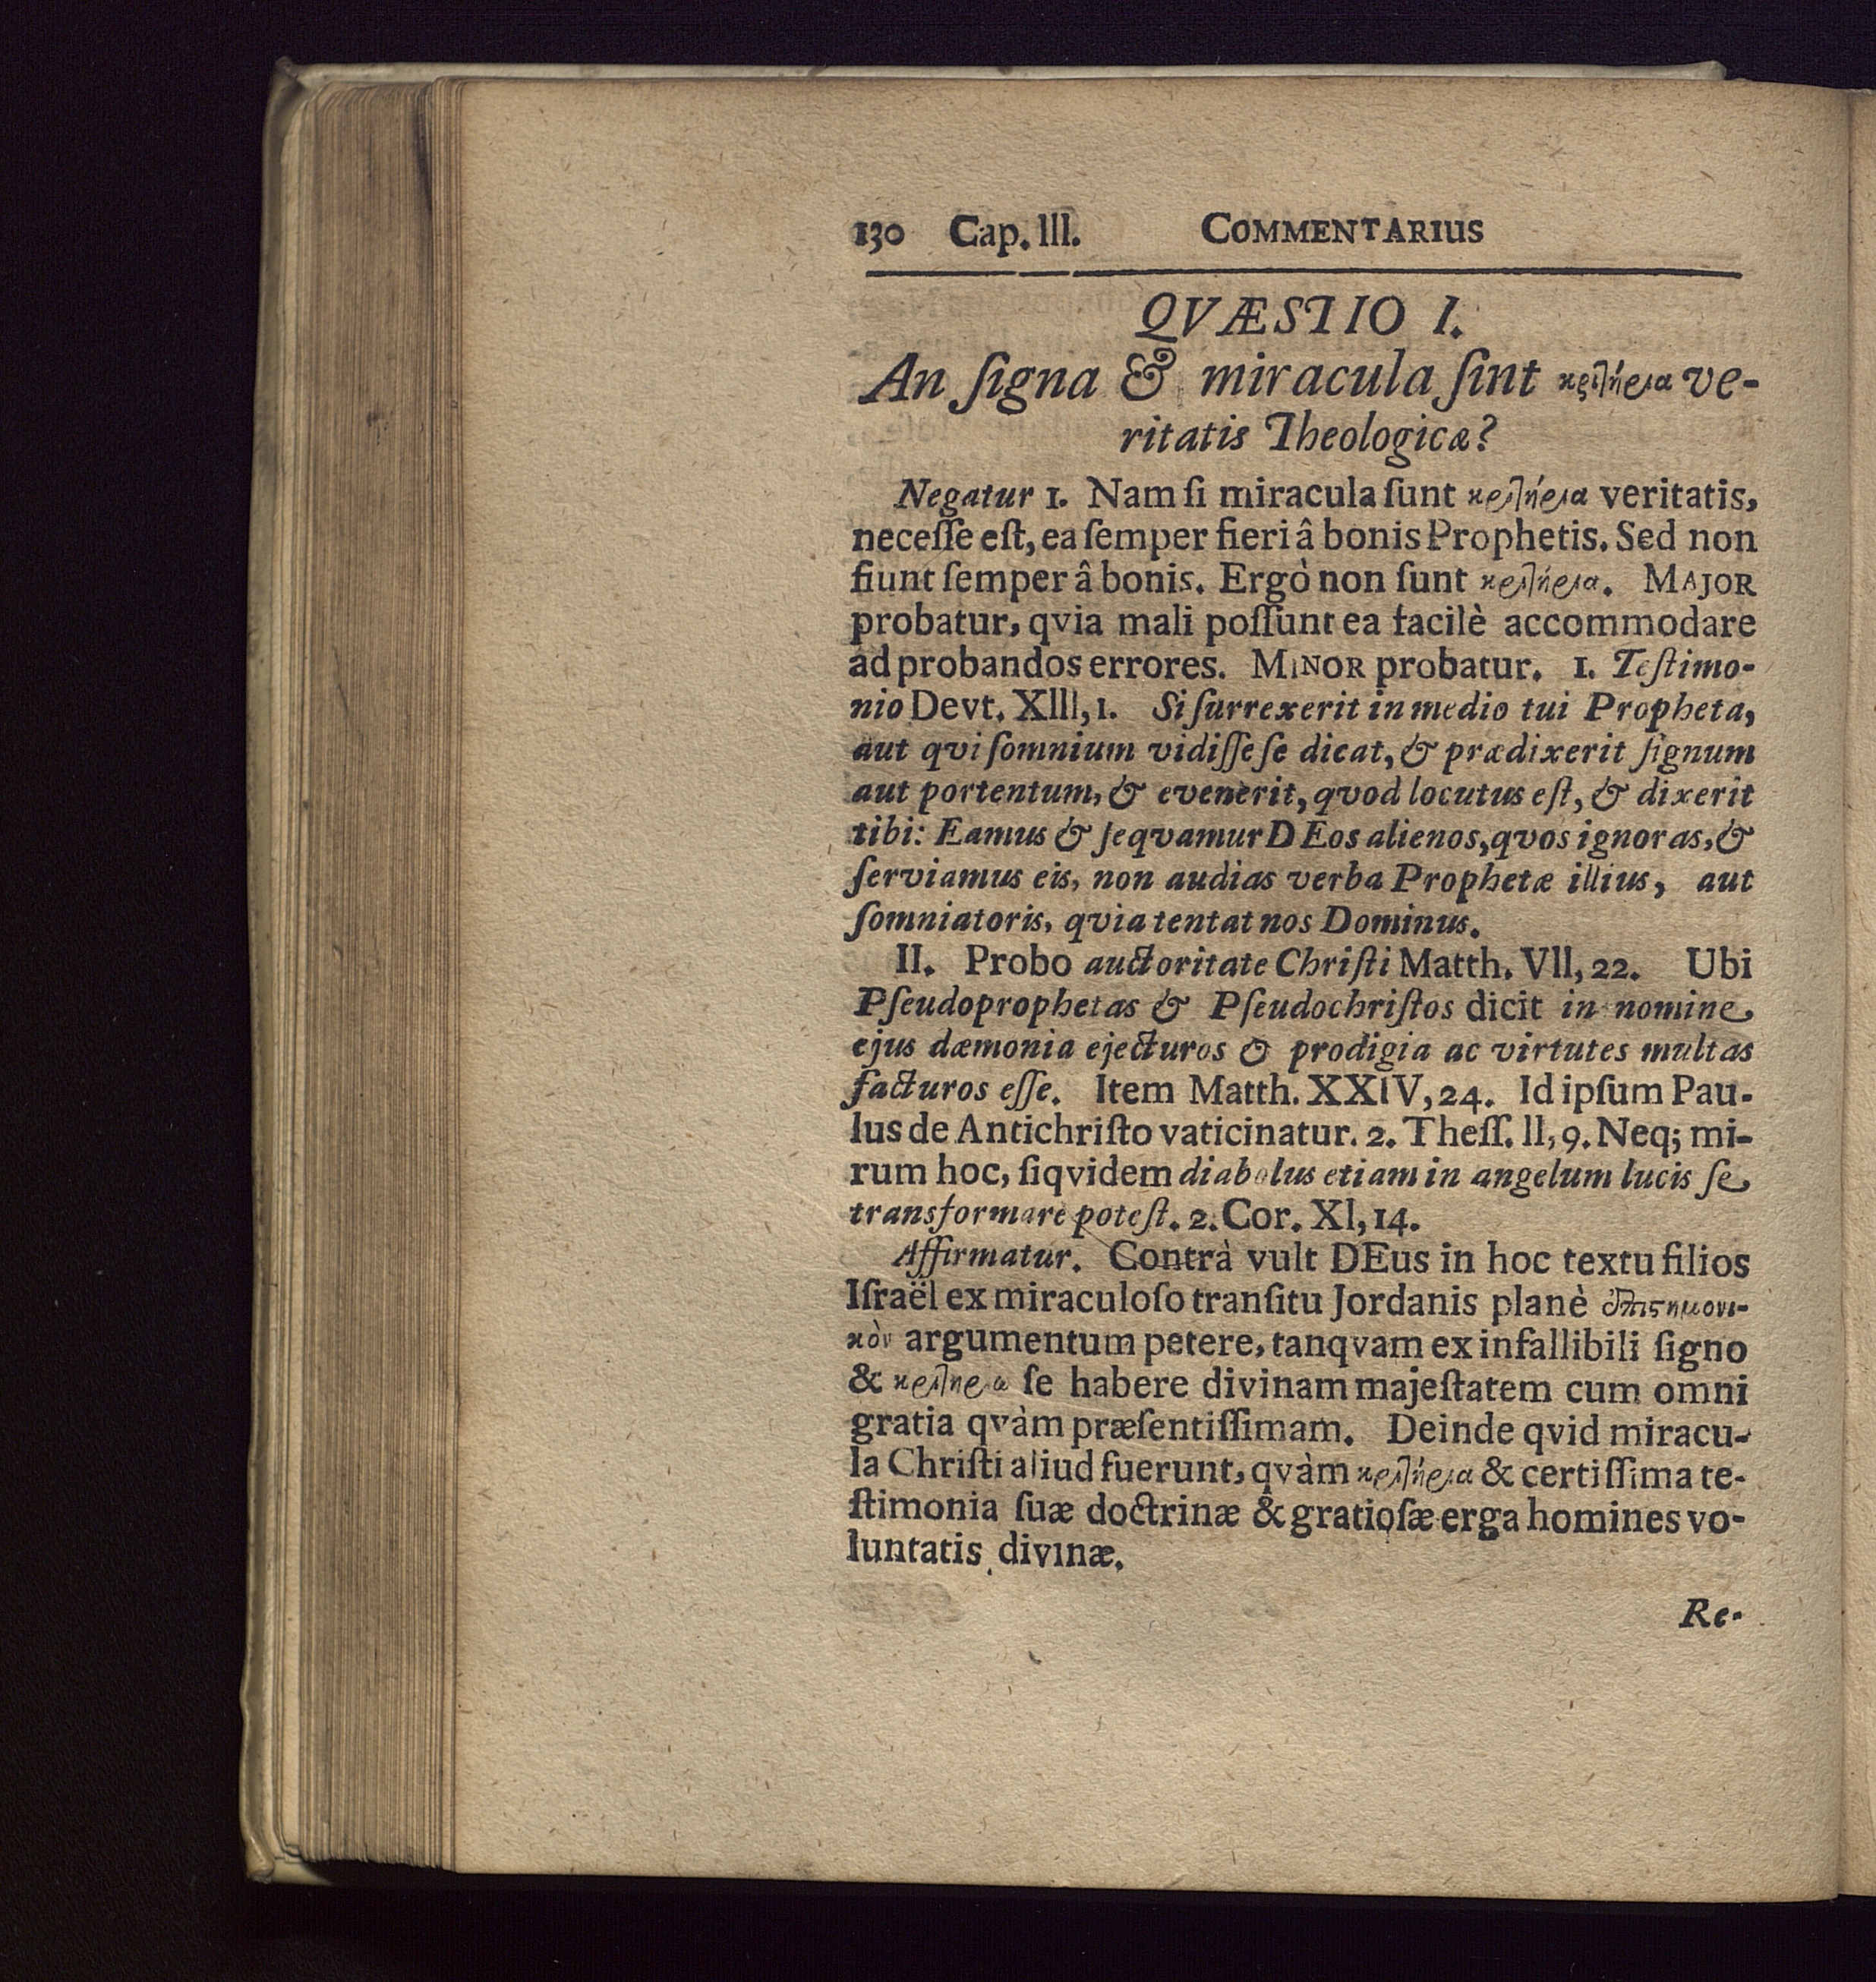 130 Cap. III. COMMENTARIUS
QVÆSTIO I.
An ſigna & miracula ſint κριτήρια ve-
ritatis Theologicæ?
Negatur 1. Nam ſi miracula ſunt κριτήρια veritatis,
neceſſe eſt, ea ſemper fieri â bonis Prophetis. Sed non
fiunt ſemper â bonis. Ergò non ſunt κριτήρια. MAJOR
probatur, qvia mali poſſunt ea facilè accommodare
ad probandos errores. MINOR probatur. 1. Teſtimo-
nio Devt. XIII, 1. Si ſurrexerit in medio tui Propheta,
aut qvi ſomnium vidiſſe ſe dicat, & prædixerit ſignum
aut portentum, & evenerit, qvod locutus eſt, & dixerit
tibi: Eamus & ſeqvamur DEos alienos, qvos ignoras, &
ſerviamus eis, non audias verba Prophetæ illius, aut
ſomniatoris, qvia tentat nos Dominus.
II. Probo auctoritate Chriſti Matth. VII, 22. Ubi
Pſeudoprophetas & Pſeudochriſtos dicit in nomine
ejus dæmonia ejecturos & prodigia ac virtutes multas
facturos eſſe. Item Matth. XXIV, 24. Id ipſum Pau-
lus de Antichriſto vaticinatur. 2. Theſſ. II, 9. Neq; mi-
rum hoc, ſiqvidem diabolus etiam in angelum lucis ſe
transformare poteſt. 2. Cor. XI, 14.
Affirmatur. Contrà vult DEus in hoc textu filios
Iſraël ex miraculoſo tranſitu Jordanis planè ἐπιστημονι-
κὸν argumentum petere, tanqvam ex infallibili ſigno
& κριτηρια ſe habere divinam majeſtatem cum omni
gratia qvàm præſentiſſimam. Deinde qvid miracu-
la Chriſti aliud fuerunt, qvàm κριτήρια & certiſſima te-
ſtimonia ſuæ doctrinæ & gratioſæ erga homines vo-
luntatis divinæ.
Re-